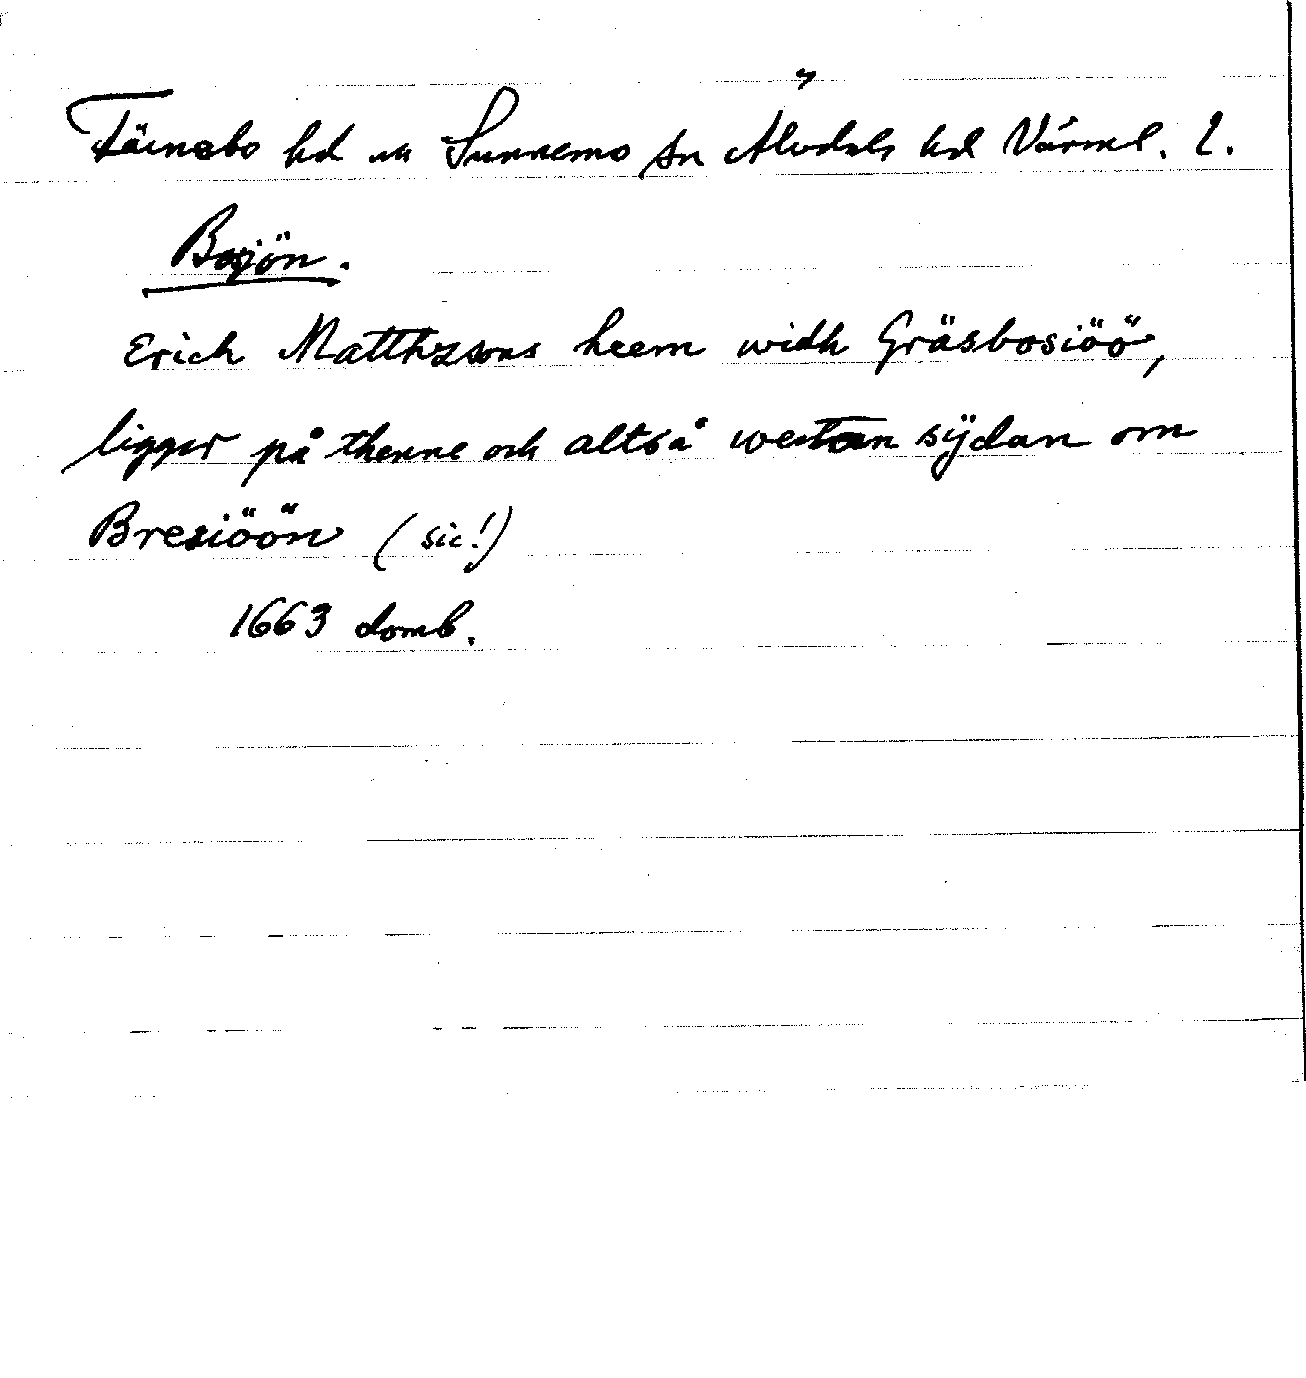 Färnebo hd ↔ Sunnemo sn Älvdals hd Värml. l.
Bosjön.
Erich Matthzsons heem widh Gräsbosiöö,
ligger på thenne och altså westan sÿdan om
Bresiöön (sic!)
1663 domb.